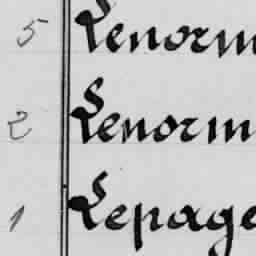 5 Lenorm
2 Lenorm
1 Lepage